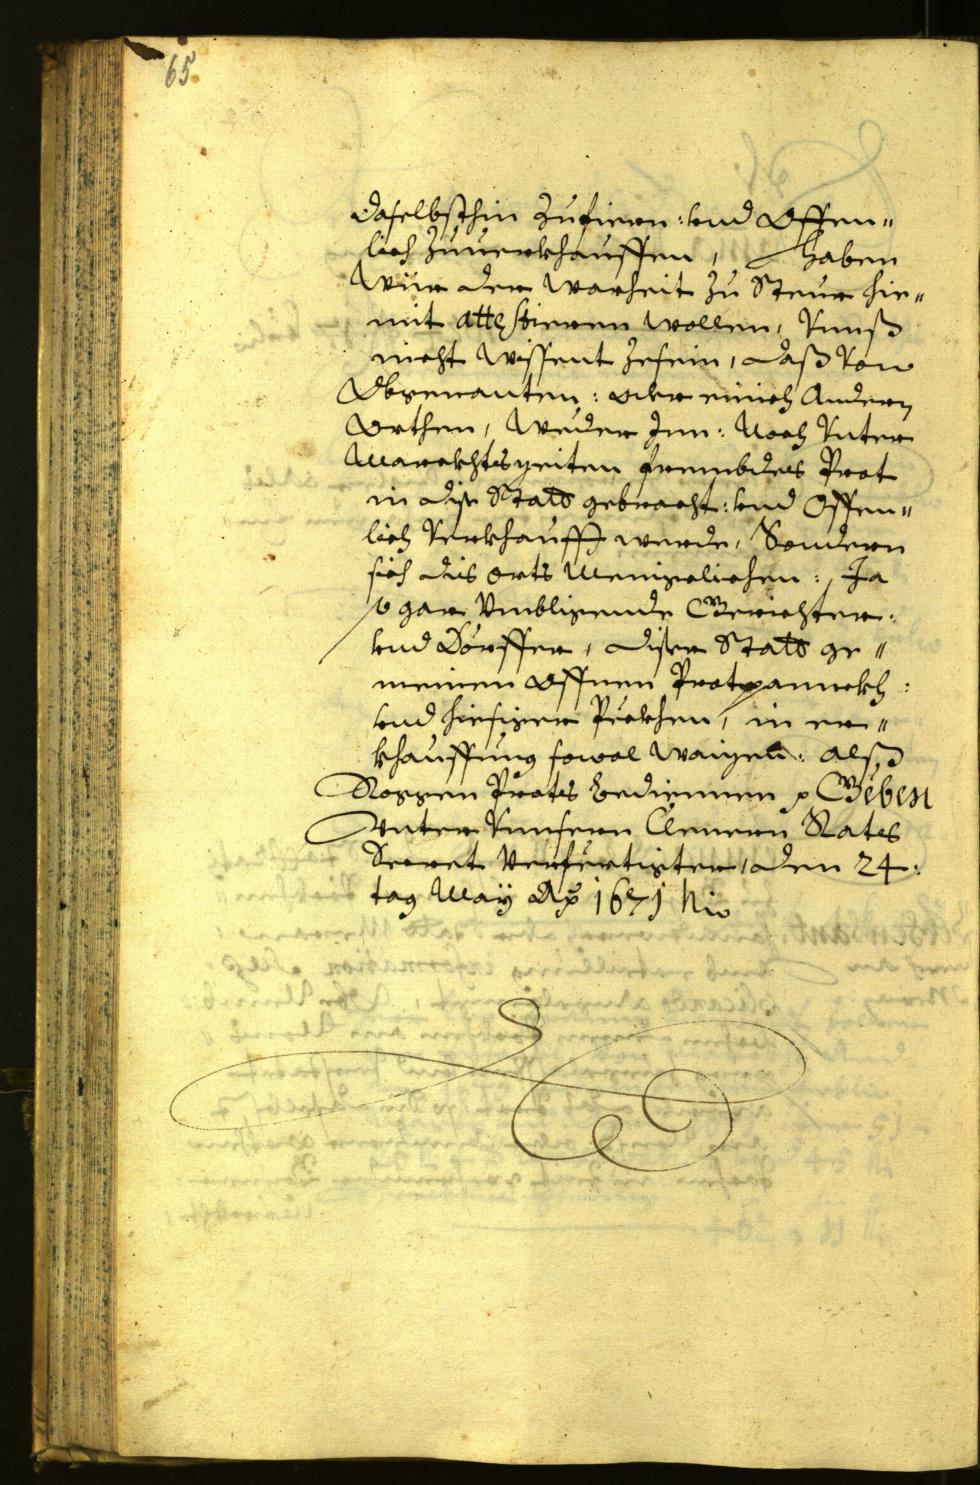 65
daselbsthin Zufiern: vnd Offen"
lich Zuuerkhauffen, haben
Wür der Warheit zu Steur hie"
mit attestieren wollen, Vnnß
nicht Wissent zesein, daß von
Obgenanten: oder einich Andern
Orthen, Weder Inn: Noch Vnter
Marckhtszeiten frembdes Prot
in dise Statt gebracht: vnd Offen"
lich Verkhaufft werde, Sondern
sich dis orts Menigelichen: Ja
so gar Vmbligende Gerichter:
vnd Dörffer, diser Statt ge"
meinen Offnen Protpannckh:
vnd hiesiger Peckhen, in er"
khauffung sowol Waizen: alß
Roggen Prots bediennen Geben
Vnter Vnnsern Clenern Rats
Secret Verfertigter, den 24:
tag May Ao 1671